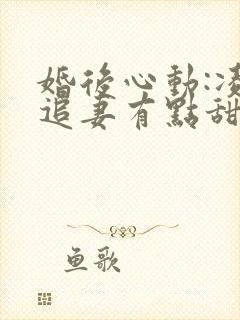 婚後心動:凌
追妻有點甜
鱼歌